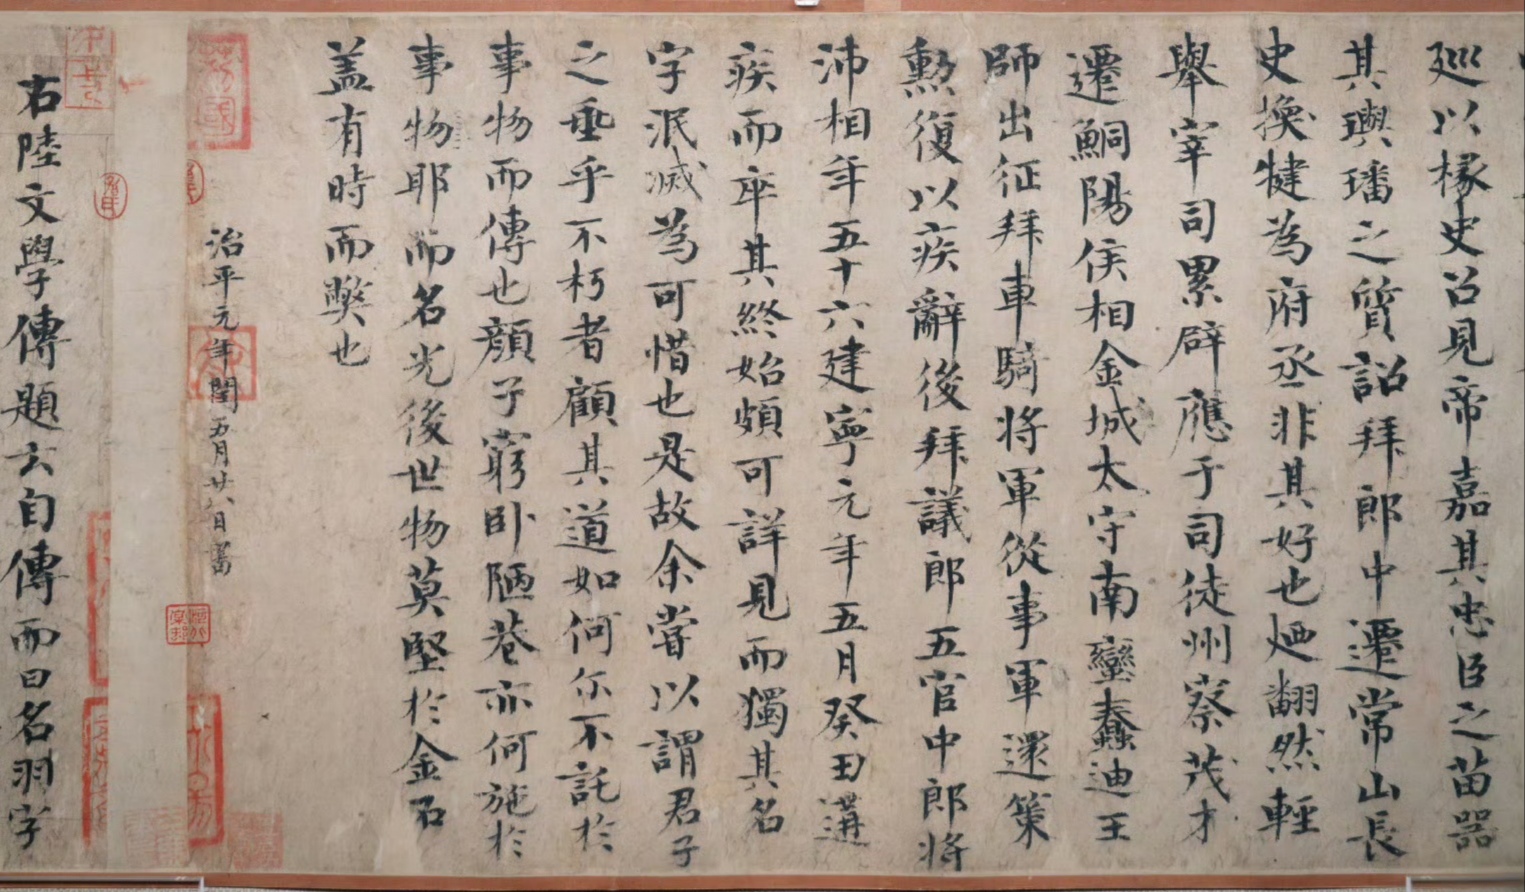 巡以掾史召見帝嘉其忠臣之苗器
其璵璠之質詔拜郎中遷常山長
史換犍為府丞非其好也迺翻然輕
舉宰司累辟應于司徒州察茂才
遷鮦陽侯相金城太守南蠻蠢迪王
師出征拜車騎將軍從事軍還策
勲復以疾辭後拜議郎五官中郎將
沛相年五十六建寧元年五月癸丑遘
疾而卒其終始頗可詳見而獨其名
字泯滅為可惜也是故余嘗以謂君子
之垂乎不朽者顧其道如何尓不託於
事物而傳也顔子窮卧陋巷亦何施於
事物耶而名光後世物莫堅於金石
盖有時而獘也
治平元年閏五月廿八日書
右陸文學傳題云自傳而曰名羽字